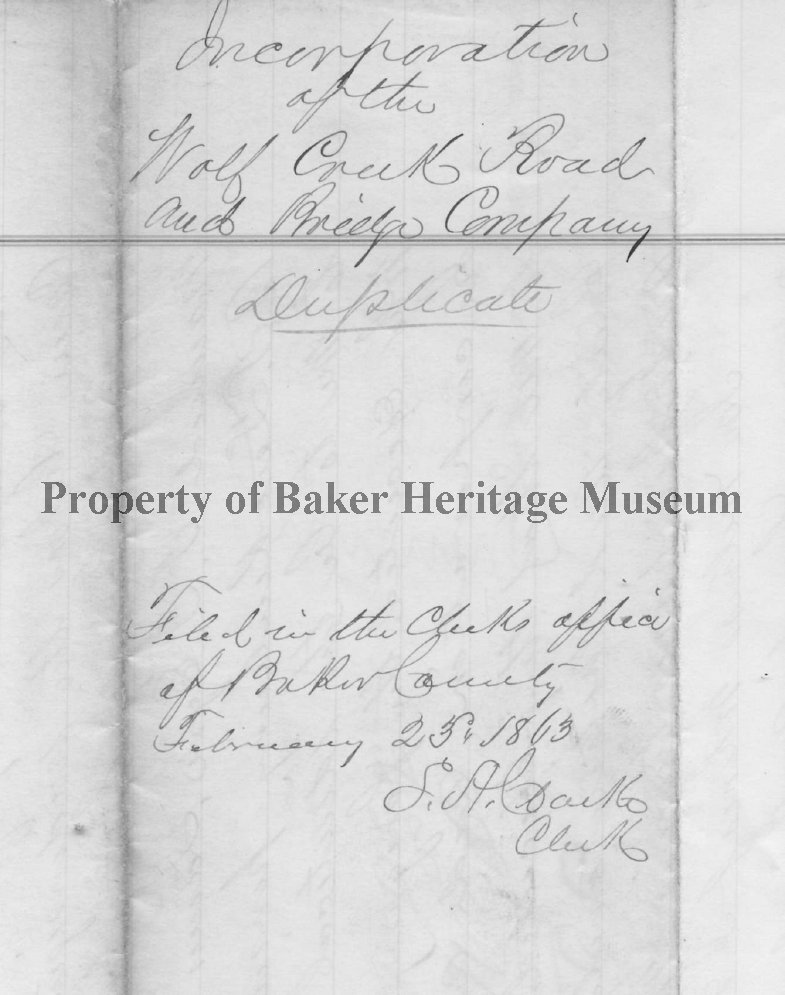 Incorporation
of the
Wolf Creek Road
and Bridge Company
Duplicate
Property of Baker Heritage Museum
Filed in the Clerks office
of Baker County
February 25, 1863
Clerk